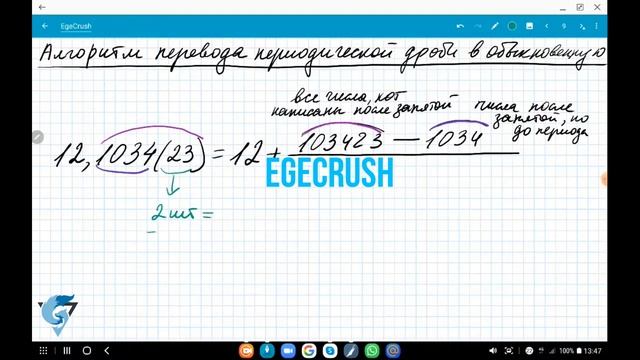 EgeCrush
Алгоритм перевода периодической дроби в обыкновенную
все числа, кот
написаны после запятой
числа после
запятой, но
до периода
12,1034(23) = 12 + 103423 — 1034
EGECRUSH
2 шт =
100% 13:47